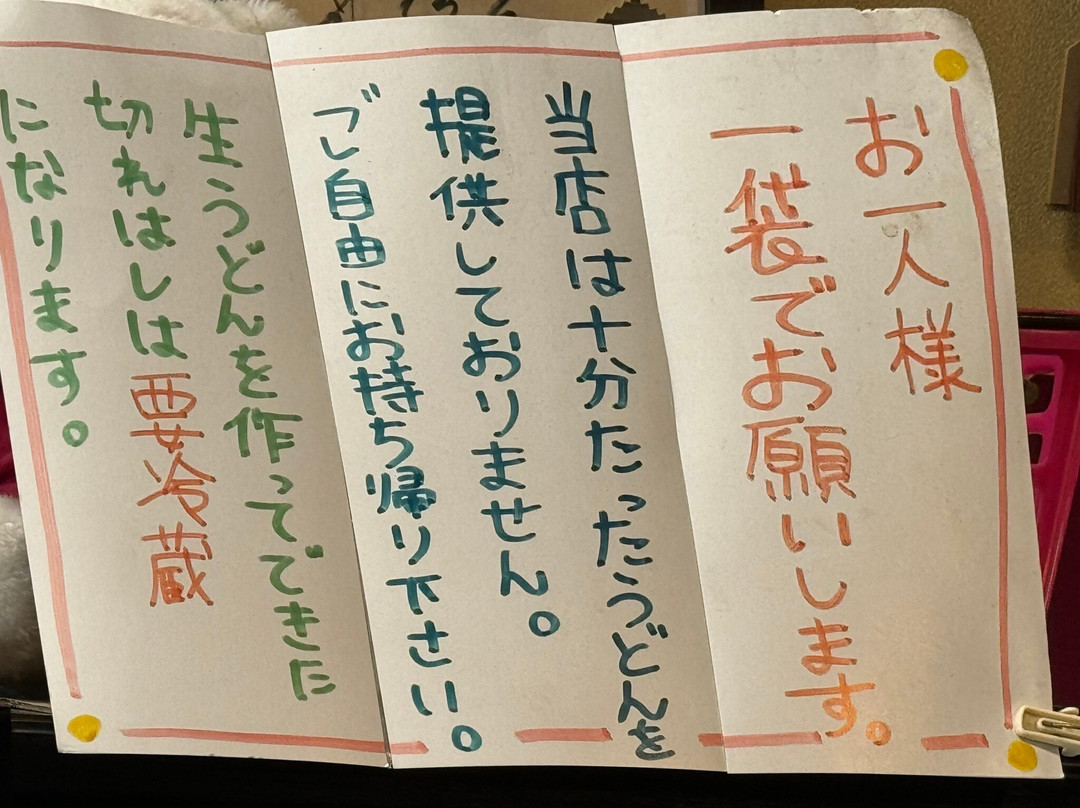 お一人様
一袋でお願いします。
当店は十分たったうどんを
提供しておりません。
ご自由にお持ち帰り下さい。
生うどんを作ってできた
切れはしは要冷蔵
になります。